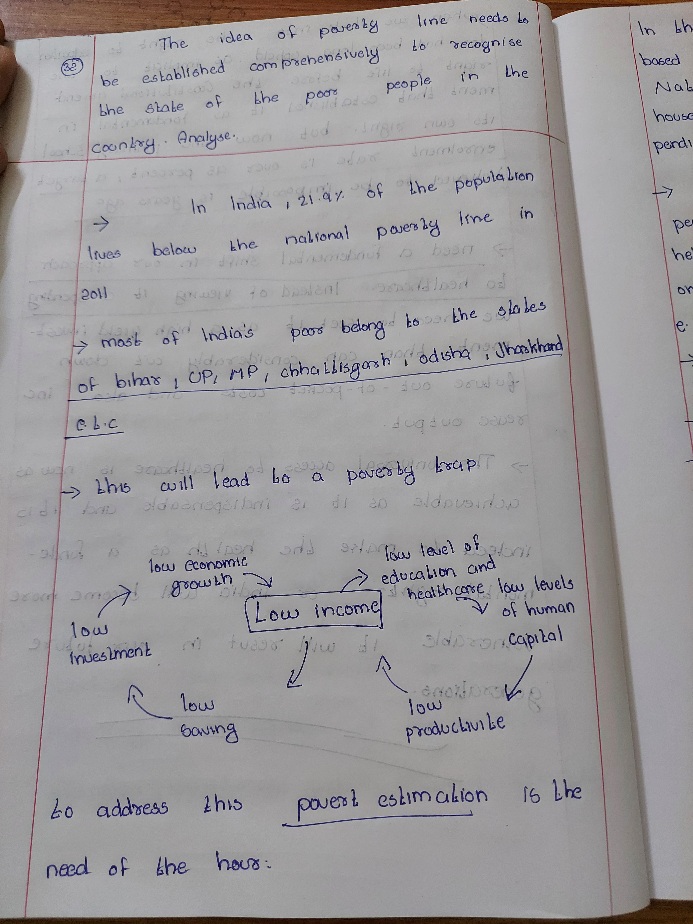 38
The idea of poverty line needs to
be established comprehensively to recognise
the state of the poor people in the
country. Analyse.
→ In India, 21.9% of the population
lives below the national poverty line in
2011
→ most of India's poor belong to the states
of bihar, UP, MP, chhattisgarh, odisha, Jharkhand
e.t.c
→ this will lead to a poverty trap
low economic
growth
low level of
education and
healthcare
low levels
of human
capital
Low income
low
investment
low
saving
low
productivite
to address this povert estimation is the
need of the hour:
In th
based
Nat
house
pendi
→
pe
he
or
e.